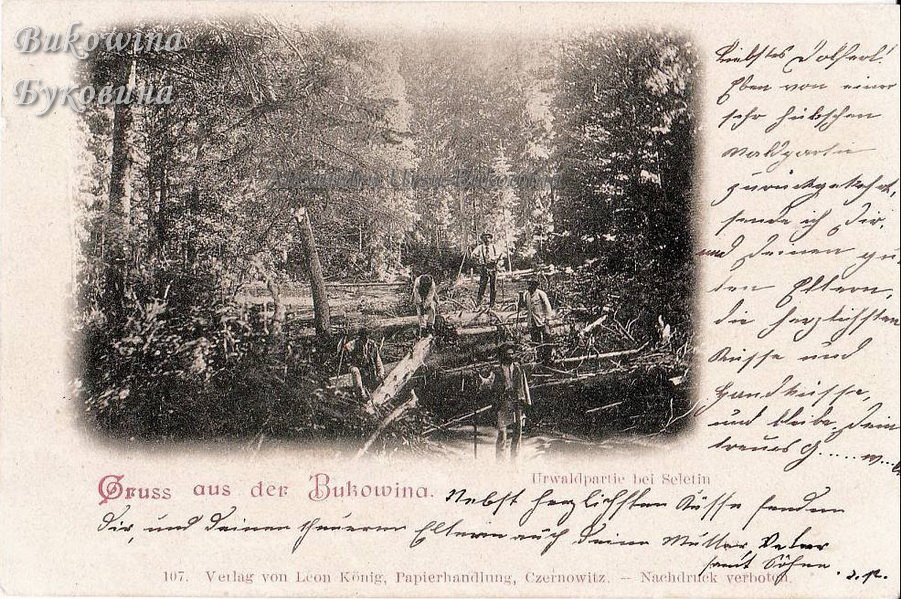 Bukowina
Буковина
Liebstes Dolferl!
Eben von einer
sehr hübschen
Waldpartie
zurückgekehrt,
sende ich Dir,
und Deinen gu-
ten Eltern,
die herzlichsten
Küsse und
Handküsse,
und bleibe Dein
treues G.....
Urwaldpartie bei Seletin
Gruss aus der Bukowina.
Nebst herzlichsten Küssen senden
Dir, und Deinen theueren Eltern auch Deine Mutter
samt Söhne.
107. Verlag von Leon König, Papierhandlung, Czernowitz. – Nachdruck verboten.